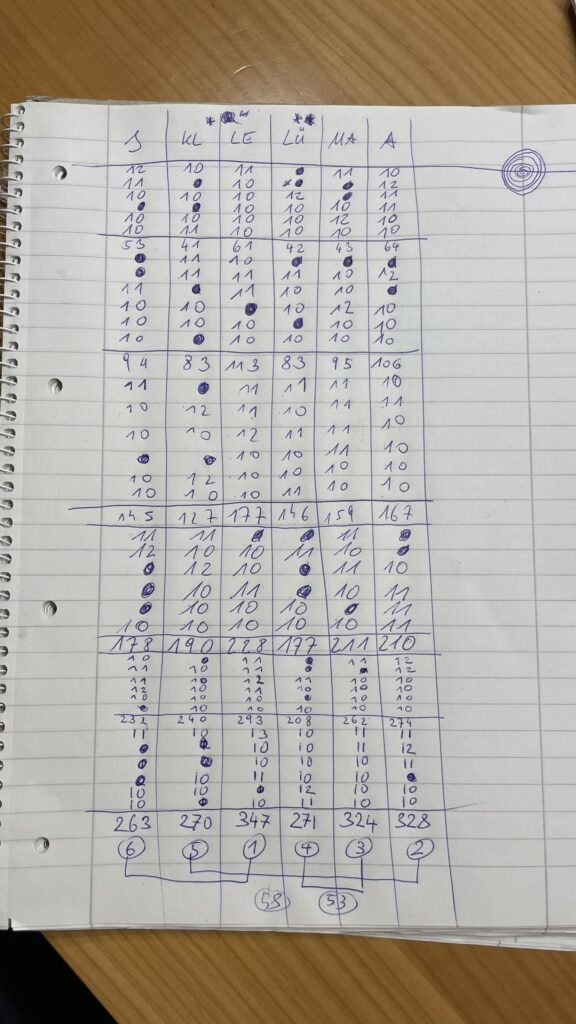 * **
J KL LE LÜ MA A
12 10 11 ● 11 10
11 ● 10 *● ● 12
10 10 10 12 ● 11
● ● 10 10 10 11
10 10 10 10 12 10
10 11 10 10 10 10
53 41 61 42 43 64
● 11 10 ● ● ●
● 11 11 11 10 12
11 ● 11 10 10 ●
10 10 ● 10 12 10
10 10 10 ● 10 10
10 ● 10 10 10 10
94 83 113 83 95 106
11 ● 11 11 11 10
10 12 11 10 11 11
10 10 12 11 11 10
● ● 10 10 11 10
10 12 10 10 10 10
10 10 10 11 10 10
145 127 177 146 159 167
11 11 ● ● 11 ●
12 10 10 11 10 ●
● 12 10 ● 11 10
● 10 11 ● 10 11
● 10 10 10 ● 11
10 10 10 10 10 11
178 190 228 197 211 210
10 ● 11 ● 11 12
11 10 11 ● ● 12
11 10 12 11 10 10
12 10 11 10 10 10
10 10 10 ● 10 10
● 10 10 10 10 10
232 240 293 208 262 274
11 10 13 10 11 11
● ● 10 10 11 12
● ● 10 10 10 11
● 10 11 10 10 ●
10 10 ● 12 10 10
10 ● 10 11 10 10
263 270 347 271 324 328
6 5 1 4 3 2
58 53